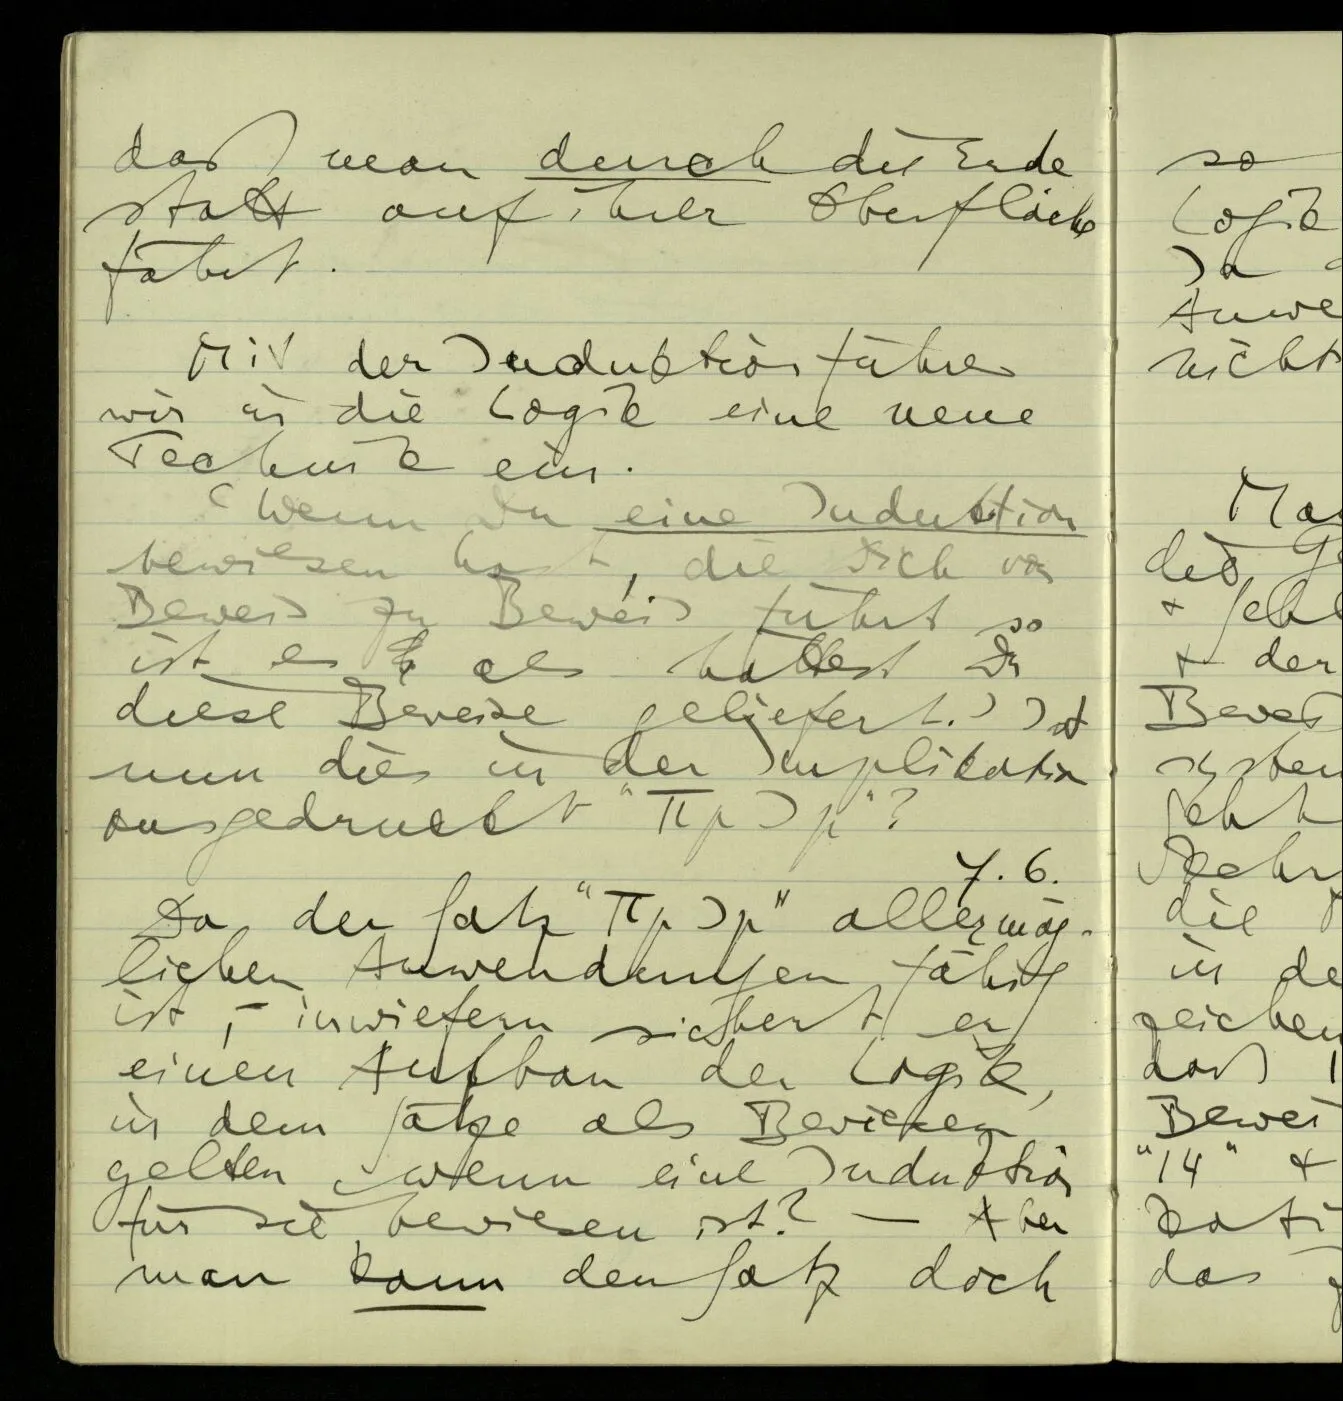 daß man durch die Erde
statt auf ihrer Oberfläche
fährt.
Mit der Induktion führen
wir in die Logik eine neue
Technik ein.
(Wenn Du eine Induktion
bewiesen hast, die Dich von
Beweis zu Beweis führt so
ist es als hättest Du
diese Beweise geliefert.) Ist
nun dies in der Implikation
ausgedrückt "Πp⊃p"?
7.6.
Da der Satz "Πp⊃p" aller mög-
lichen Anwendungen fähig
ist, – inwiefern sichert er
einen Aufbau der Logik,
in dem Sätze als Bewiesen
gelten, wenn eine Induktion
für sie bewiesen ist? — Aber
man kann den Satz doch
so
Logik
In
Anwe
nicht
Man
des Ge
+ fehl
+ der
Beweis
system
fehlt
Rechn
die
in de
zeichen
daß
Bewei
"14" +
kati
das